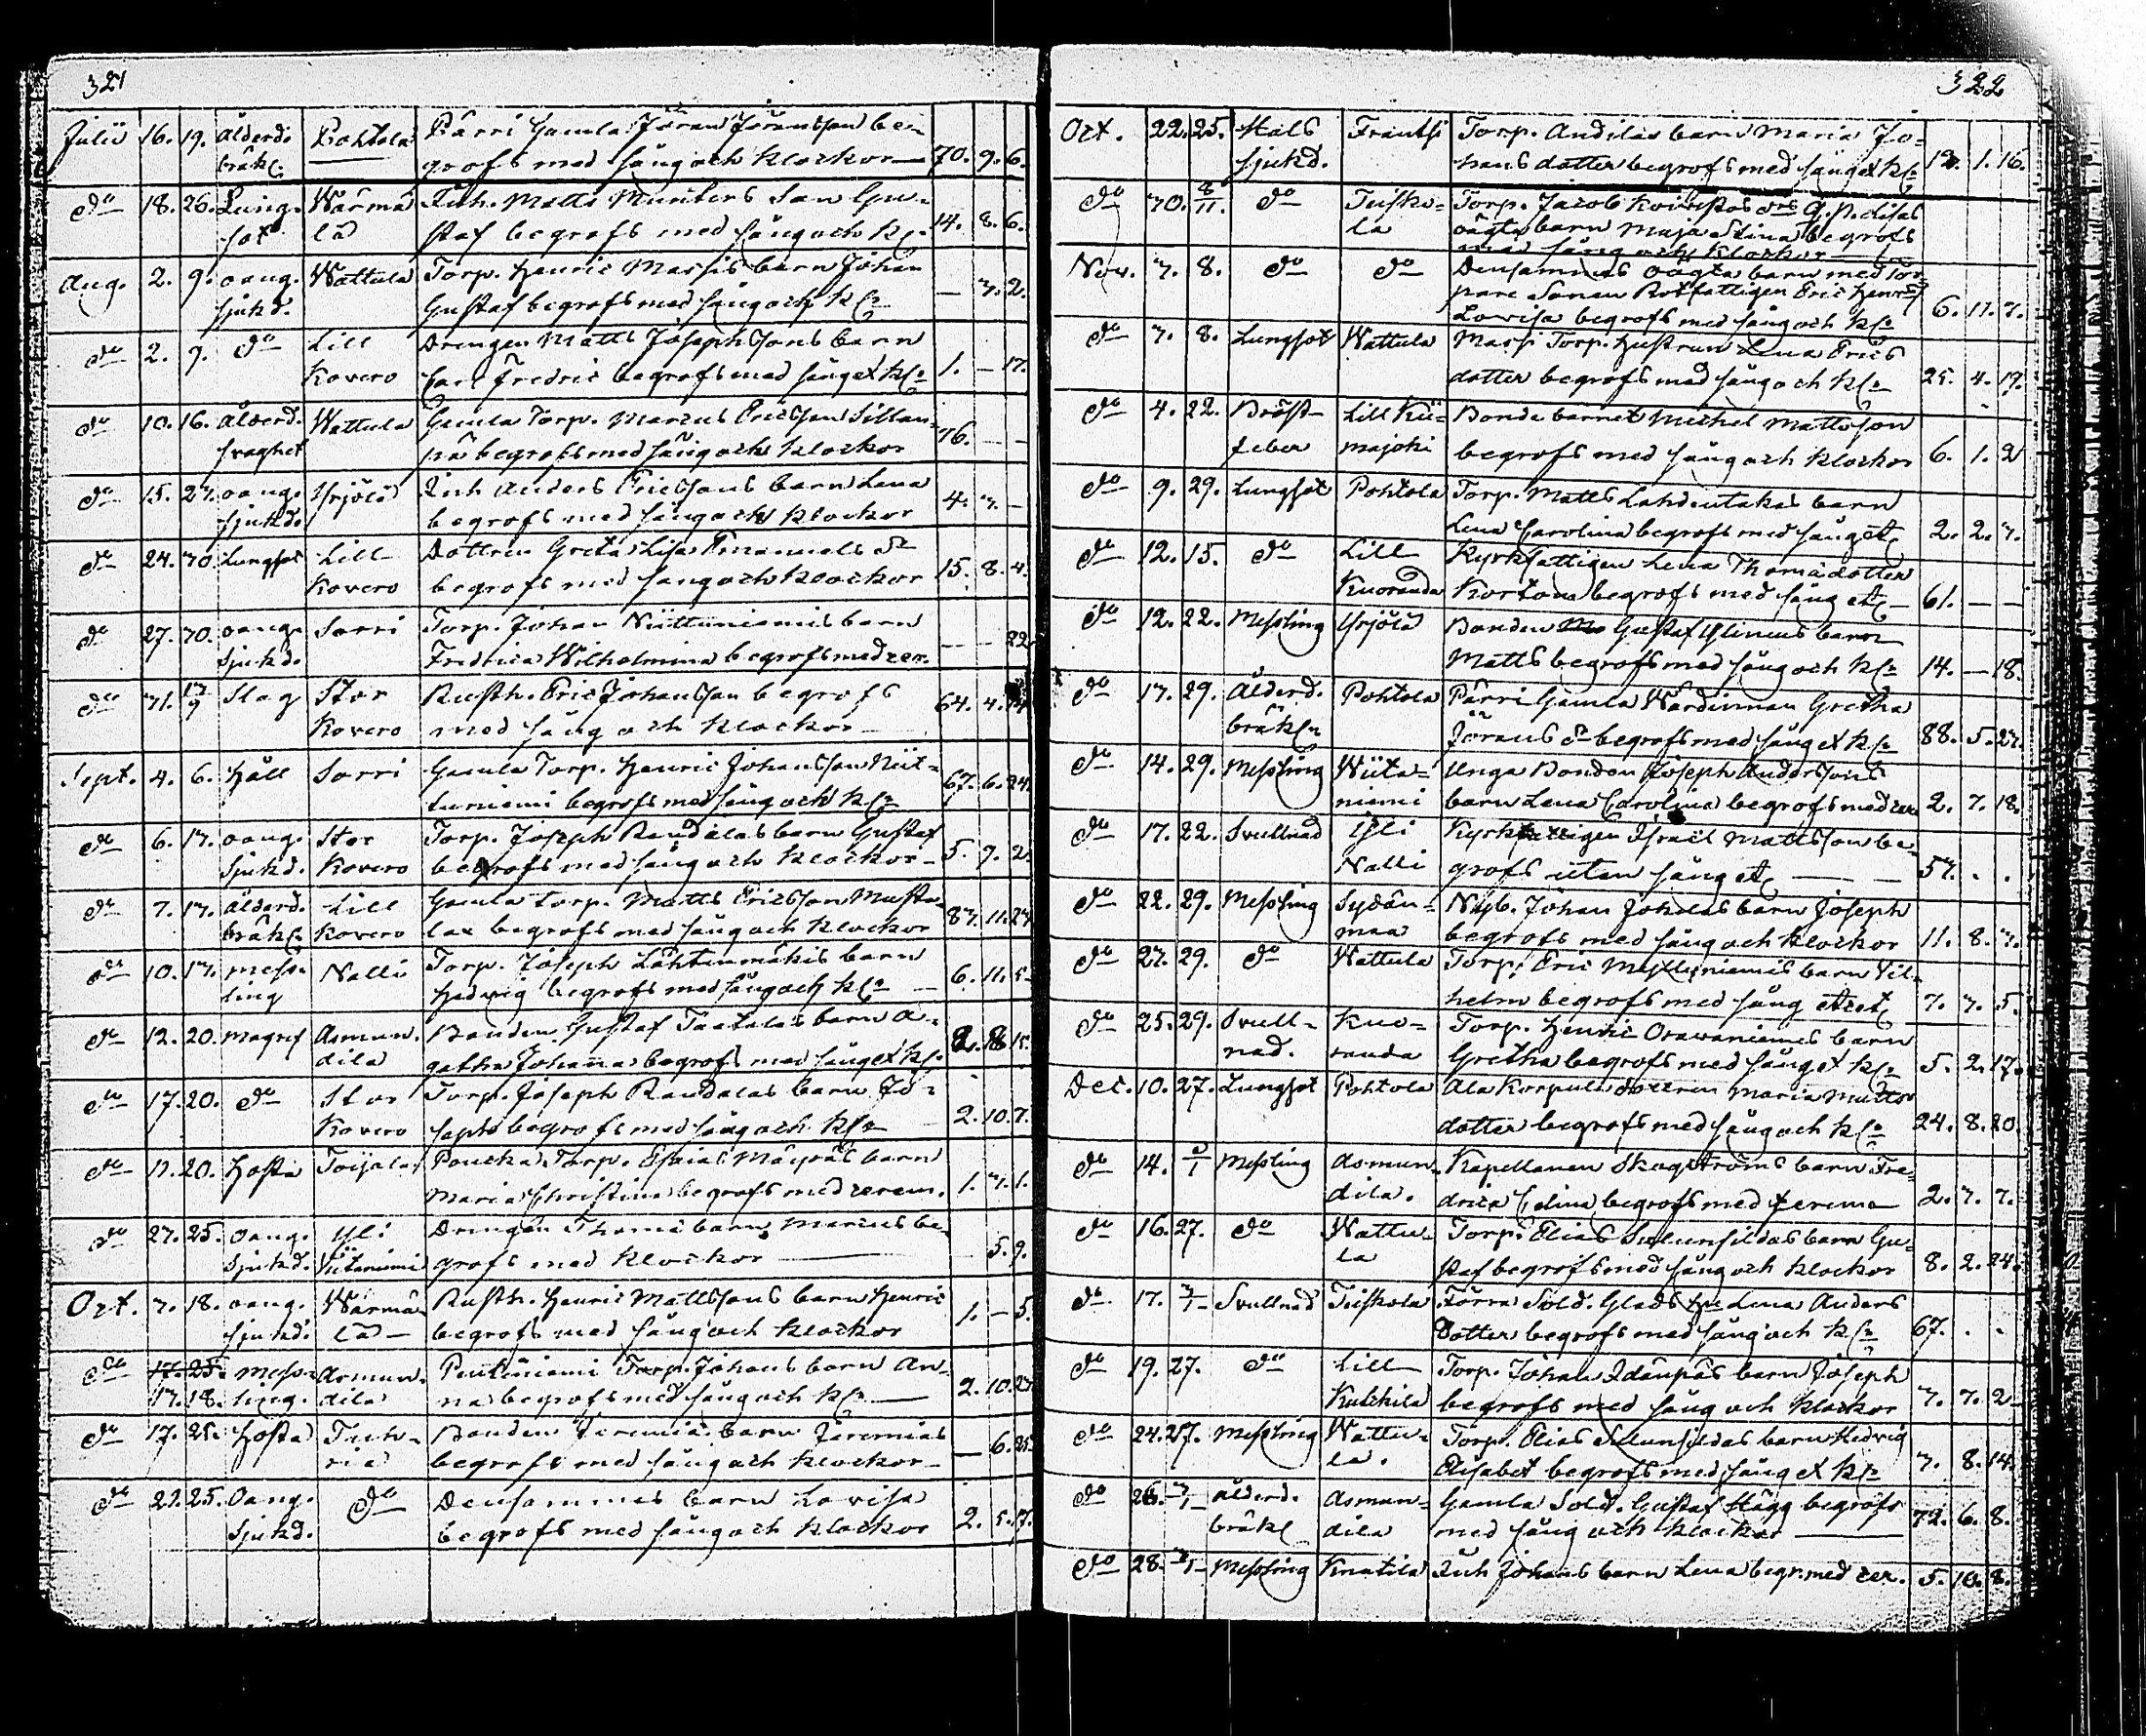 321
Julii 16. 19. Ålderd. Pohtola Pärri Gamla Jöran Jöransson be-
bräkl: grofs med sång och klockor 70. 9. 6.
do 18. 26. Lung- Wärmä Inh. Matts Munters Son Gu-
sot lä staf begrofs med sång och kl: 14. 8. 6.
Aug. 2. 9. oang. Wattula Torp. Henric Massis barn Johan
sjukd. Gustaf begrofs med sång och kl: — 7. 2.
do 2. 9. do Lill Drengen Matts Josephssons barn
Kovero Carl Fredric begrofs med sång et kl: 1. — 17.
do 10. 16. Ålderd. Wattula Gamla Torp. Marcus Ericsson Sillan-
svaghet pä begrofs med sång och klockor 76. — —
do 15. 27. oang. Yrjölä Inh Anders Ericssons barn Lena
sjukd. begrofs med sång och klockor 4. 7. —
do 24. 30. Lungsot Lill Dottren Greta Lisa Emanuels dr
Kovero begrofs med sång och klockor 15. 8. 4.
do 27. 30. oang. Sorri Torp. Johan Niittuniemis barn
sjukd. Fredrica Wilhelmina begrofs med cer. — — 22
do 31. 17/9 Slag Stor Rusth. Eric Johansson begrofs
Kovero med sång och klockor 64. 4.
Sept. 4. 6. Håll Sorri Gamla Torp. Henric Johansson Niit-
tuniemi begrofs med sång och kl: 67. 6. 24.
do 6. 17. oang. Stor Torp. Joseph Randalas barn Gustaf
sjukd. Kovero begrofs med sång och klockor 5. 9. 2.
do 7. 17. ålderd. Lill Gamla Torp. Matts Ericsson Musta-
bräkl: Kovero lax begrofs med sång och klockor 87. 11. 27
do 10. 17. mess- Nalli Torp. Joseph Lähtenmäkis barn
ling Hedvig begrofs med sång och kl: 6. 11. 5
do 12. 20. magref Asmun- Bonden Gustaf Taatalas barn A-
dila gatha Johanna begrofs med sång et kl: 2. 8 15.
do 17. 20. do Stor Torp. Joseph Randalas barn Jo-
Kovero seph begrofs med sång och kl: 2. 10. 7.
do 11. 20. Hosta Toijala Poucka Torp. Esaias Mäyräs barn
Maria Christina begrofs med cerem. 1. 7. 1.
do 23. 25. Oang. Yli Drengen Thomas barn Marcus be-
sjukd. Viitaniemi grofs med klockor 5. 9.
Oct. 7. 18. oang. Wärmä- Rusth. Henric Mattssons barn Henric
sjukd. lä begrofs med sång och klockor 1. — 5.
do 17. 25. mess- Asmun- Pentiniemi Torp. Johans barn An-
17. 18. ling. dila na begrofs med sång och kl: 2. 10. 27
do 17. 25. Hosta Tuh- Bonden Jeremias barn Jeremias
ria begrofs med sång och klockor — 6. 25.
do 22. 25. Oang. do Densammes barn Lovisa
sjukd. begrofs med sång och klockor 2. 5. 7.
322
Oct. 22. 25. Hals Frantsi Torp. Andilas barn Maria Jo-
sjukd. hans dotter begrofs med sång et kl: 1. 16.
do 30. 8/11. do Tuisku- Torp. Jacob
la oägta barn Maja Stina begrofs
med sång och klockor
Nov. 7. 8. do do Densammes oägta barn med Tor-
pare Sonen Rotfattigen Eric Henrs:
Lovisa begrofs med sång och kl: 6. 11. 7.
do 7. 8. Lungsot Wattula Massi Torp. Hustrun Lena Erics
dotter begrofs med sång och kl: 25. 4. 17.
do 4. 22. Bröst- Lill Kii- Bonde barnet Michel Mattsson
feber majoki begrofs med sång och klockor 6. 1. 2
do 9. 29. Lungsot Pohtola Torp. Matts Lahdentakas barn
Lena Carolina begrofs med sång etc 2. 2. 7.
do 12. 15. do Lill Kyrkfattigen Lena Thomadotter
Kuoranda Kortona begrofs med sång etc 61. — —
do 12. 22. Messling Yrjölä Bonden Gustaf Ylinens barn
Matts begrofs med sång och kl: 14. — 18.
do 17. 29. Ålderd. Pohtola Pärri Gamla Wärdinnan Gretha
bräkl: Jörans dr begrofs med sång et kl: 88. 5. 27.
do 14. 29. Messling Wiita- Unga Bonden Joseph Anderssons
niemi barn Lena Carolina begrofs med cer 2. 7. 18.
do 17. 22. Svullnad Yli Kyrkfattigen Israel Mattsson be-
Nalli grofs utan sång etc 57. . .
do 22. 29. Messling Sydän- Nyb. Johan Jokelas barn Joseph
maa begrofs med sång och klockor 11. 8. 7.
do 27. 29. do Wattula Torp. Eric Myllyniemis barn Vil-
helm begrofs med sång etcet 7. 7. 5.
do 25. 29. Svull- Kuo- Torp. Henric Oravaniemes barn
nad. randa Gretha begrofs med sång et kl: 5. 2. 17.
Dec. 10. 27. Lungsot Pohtola Ala Korpula dottren Maria Matts
dotter begrofs med sång och kl: 24. 8. 20.
do 14. Messling Asmun- Kapellanen Skogströms barn Fre-
dila. drica Celina begrofs med cerem 2. 7. 7.
do 16. 27. do Wattu- Torp. Elias Salunsildas barn Gu-
la staf begrofs med sång och klockor 8. 2. 24.
do 17. 3/1 Svullnad Tuiskula Förra Sold. Glads Hu Lena Anders
dotter begrofs med sång och kl: 67. . .
do 19. 27. do Lill Torp. Johan Idänpäs barn Joseph
Kulckila begrofs med sång och klockor 7. 7. 2
do 24. 27. Messling Wattu- Torp. Elias Salunsildas barn Hedvig
la. Elisabet begrofs med sång et kl: 7. 8. 14.
do 26. 3/1 ålderd. Asmun- Gamla Sold. Gustaf Hägg begrofs
bräkl dila med sång och klockor 72. 6. 8.
do 28. 3/1 Messling Knutila Inh Johans barn Lena begr. med cer. 5. 10. 8.